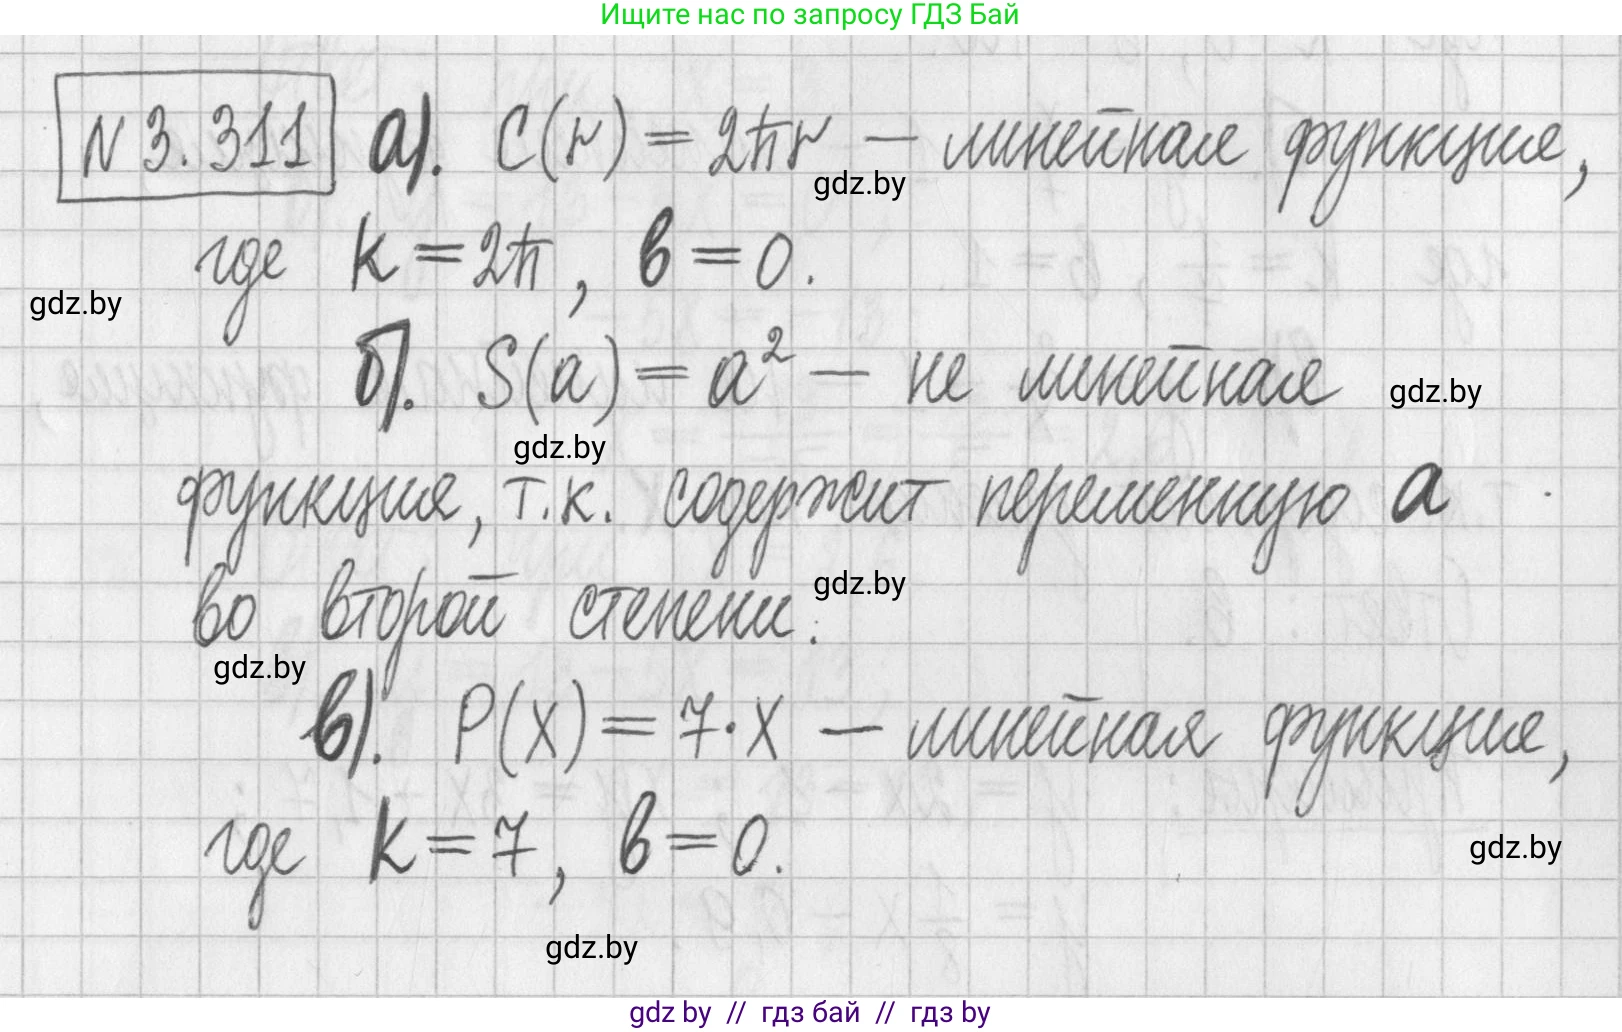 Ищите нас по запросу ГДЗ Бай
N 3.311 а). C(r) = 2πr — линейная функция,
gdz.by
где k = 2π, в = 0.
gdz.by
б). S(a) = a² — не линейная
gdz.by
gdz.by
функция, т.к. содержит переменную a
во второй степени.
gdz.by
gdz.by
в). P(x) = 7·x — линейная функция,
где k = 7, в = 0.
gdz.by
gdz.by
gdz by // гдз бай // гдз by